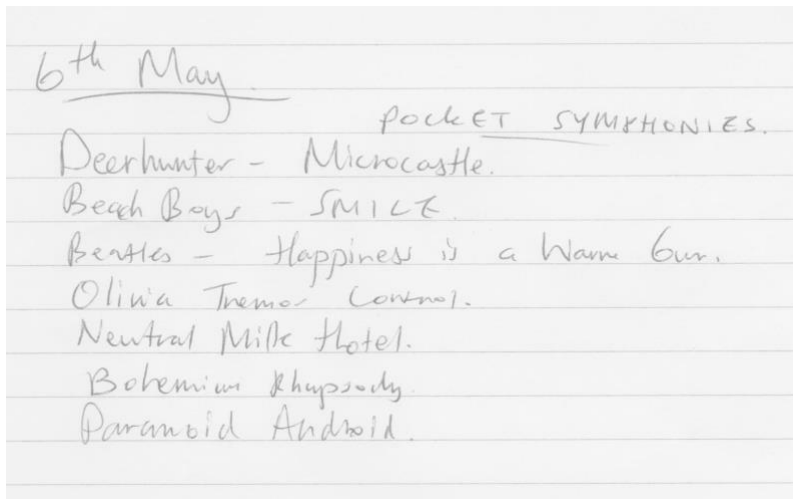 6th May.
POCKET SYMPHONIES.
Deerhunter - Microcastle.
Beach Boys - SMILE.
Beatles - Happiness is a Warm Gun.
Olivia Tremor Control.
Neutral Milk Hotel.
Bohemian Rhapsody
Paranoid Android.